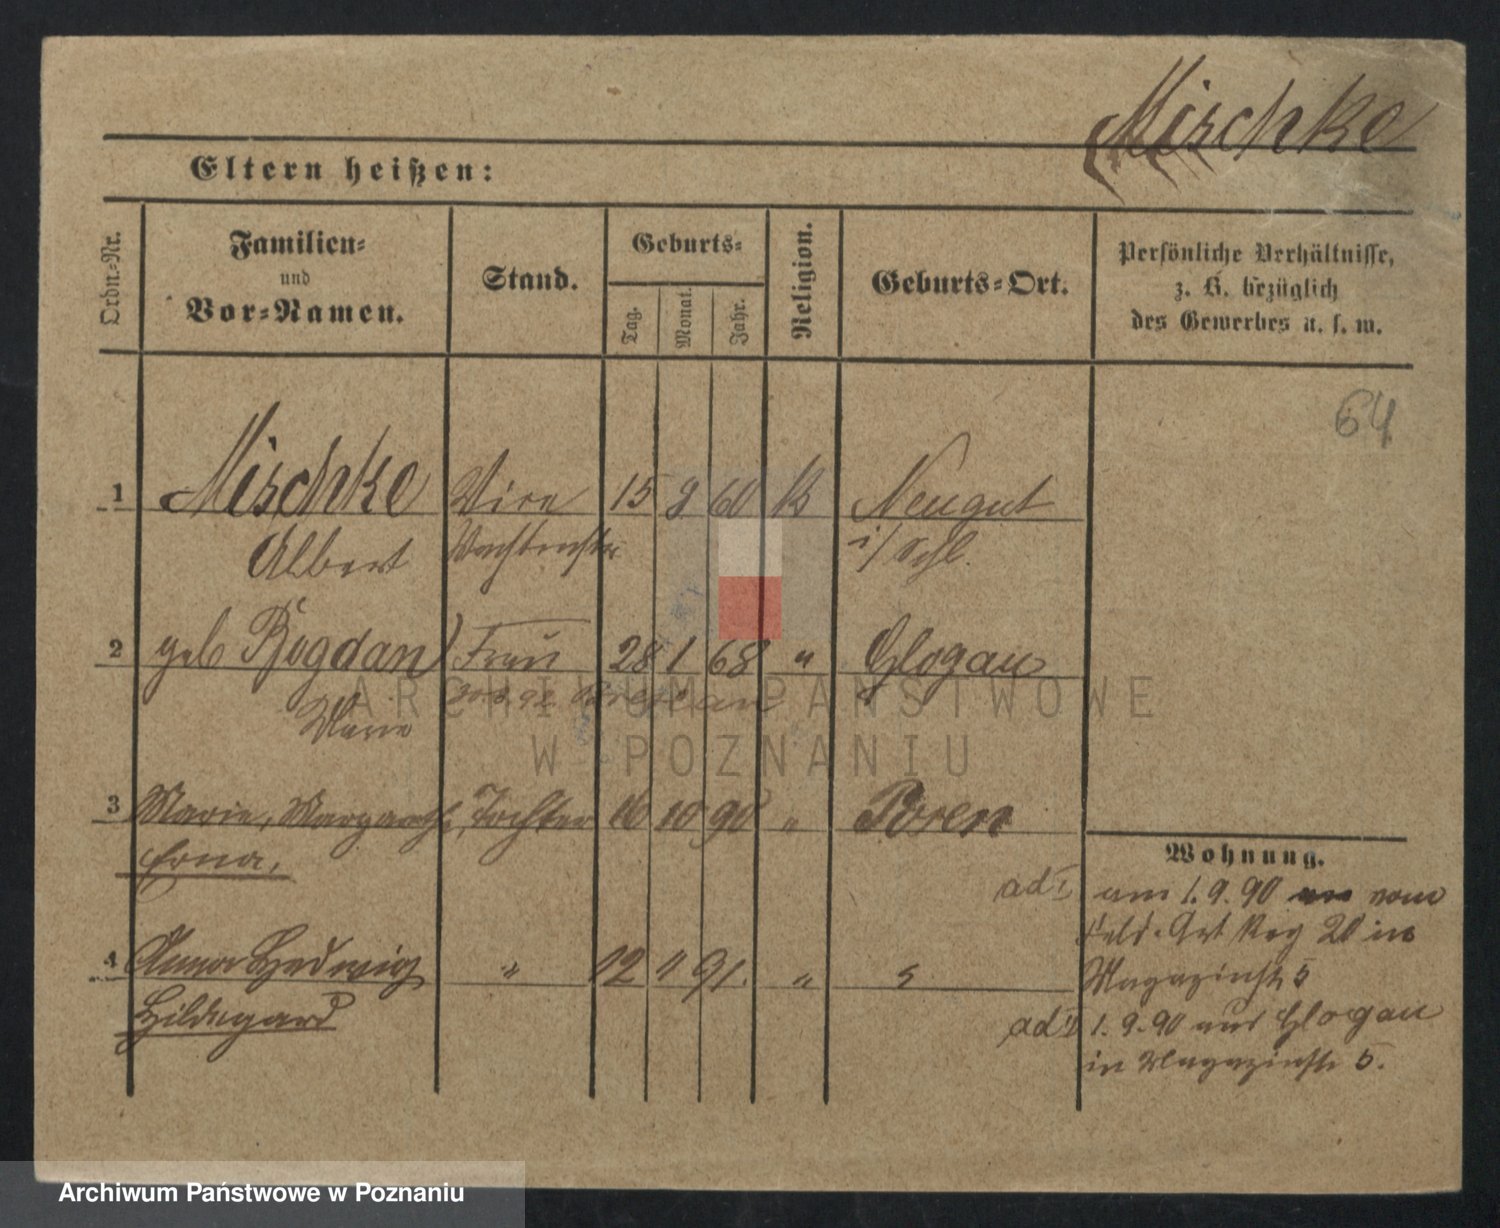 Mischke
Eltern heißen:
Ordn.-Nr.
Familien-
und
Vor-Namen.
Stand.
Geburts-
Tag.
Monat.
Jahr.
Religion.
Geburts-Ort.
Persönliche Verhältnisse,
z. B. bezüglich
des Gewerbes u. s. w.
64
1 Mischke Vice 15 9 60 K Neugut
Albert Wachtmstr i/ Schl.
2 geb Bogdan Frau 28 1 68 " Glogau
Marie
3 Marie, Margareth, Tochter 16 10 90 " Posen
Erna,
4 Anna Hedwig " 12 91. " "
Hildegard
Wohnung.
ad 1 am 1.9.90 vom
Feld-Art Reg 20 in
Magazinstr 5
ad 2 1.9.90 aus Glogau
in Magazinstr 5.
ARCHIWUM PAŃSTWOWE
W POZNANIU
Archiwum Państwowe w Poznaniu